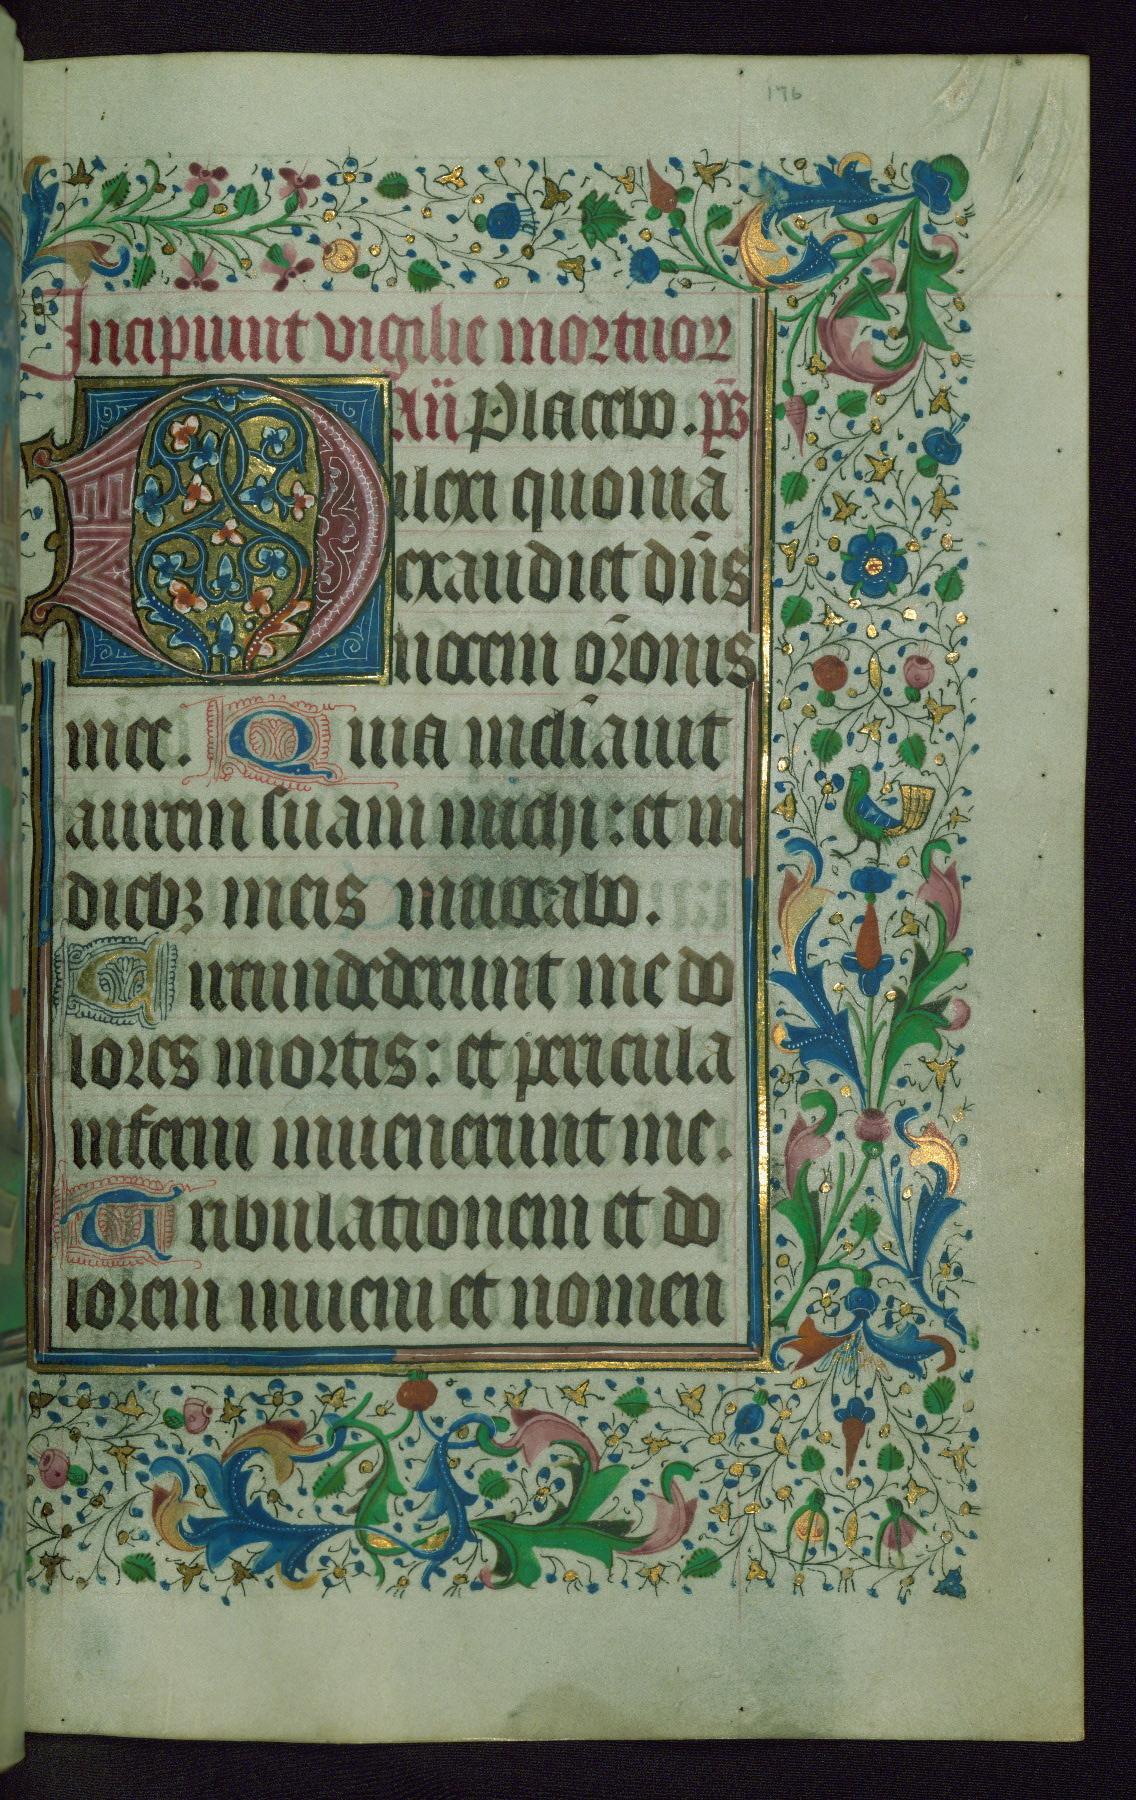 176
Incipiunt vigilie mortuoꝝ
An̄ Placebo. ps̄
Dilexi quoniā
exaudiet dn̄s
uocem or̄onis
mee. Quia incliāuit
aurem suam michi: et in
diebꝫ meis inuocabo.
Circumdederunt me do
lores mortis: et pericula
inferni inuenerunt me.
Tribulationem et do
lorem inueni et nomen